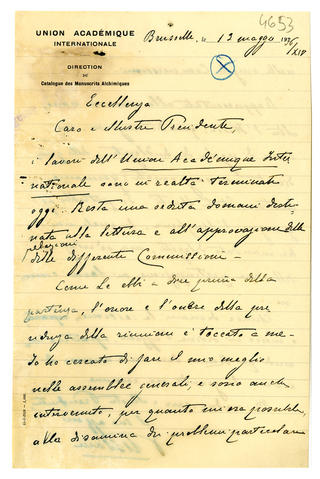 4653
UNION ACADÉMIQUE
INTERNATIONALE
DIRECTION
DU
Catalogue des Manuscrits Alchimiques
Bruxelles, 12 maggio 1936/XIV
Eccellenza
Caro e Illustre Presidente,
i lavori dell'Union Académique Inter
nationale sono in realtà terminati
oggi. Resta una seduta domani desti
nata alla lettura e all'approvazione delle
relazioni
delle differenti Commissioni –
Come Le ebbi a dire prima della
partenza, l'onore e l'onere della pre
sidenza della riunione è toccato a me.
Io ho cercato di fare il mio meglio
nelle assemblee generali, e sono anche
intervenuto, per quanto mi era possibile,
alla disamina dei problemi particolari